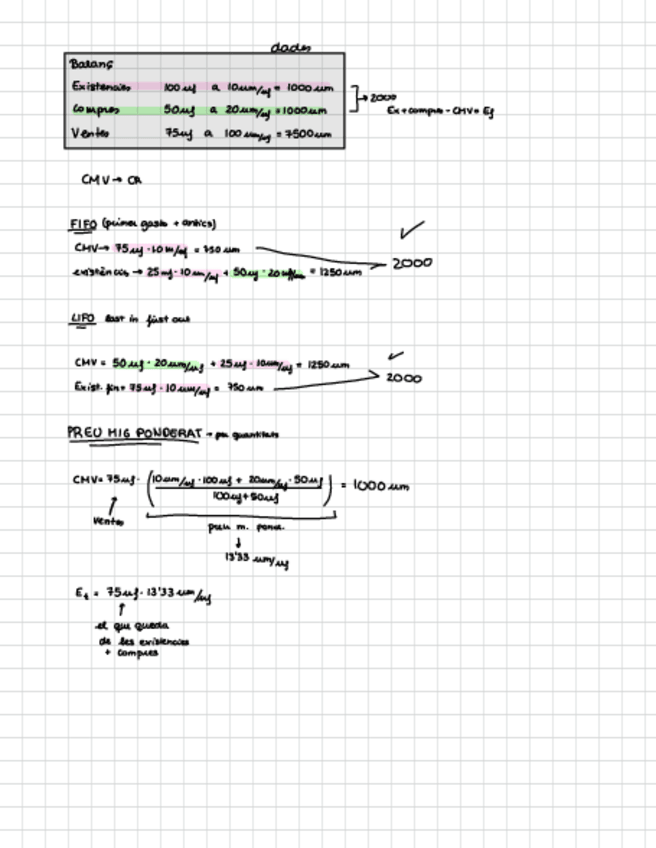 dades
Balanç
Existències 100 uf a 10um/uf = 1000 um
Compres 50uf a 20um/uf = 1000um → 2000
Ex + compres - CMV = Ef
Ventes 75uf a 100 um/uf = 7500um
CMV → CR
FIFO (primer gasto + antics)
CMV → 75uf · 10m/uf = 750 um
existències → 25uf · 10um/uf + 50uf · 20um/um = 1250um 2000
LIFO last in first out
CMV = 50uf · 20um/uf + 25uf · 10um/uf = 1250um
Exist. fin = 75uf · 10um/uf = 750 um 2000
PREU MIG PONDERAT → per quantitats
CMV = 75uf · (10um/uf · 100uf + 20um/uf · 50uf
100uf + 50uf) = 1000 um
Ventes
preu m. pond.
13'33 um/uf
Ef = 75uf · 13'33 um/uf
el que queda
de les existències
+ compres